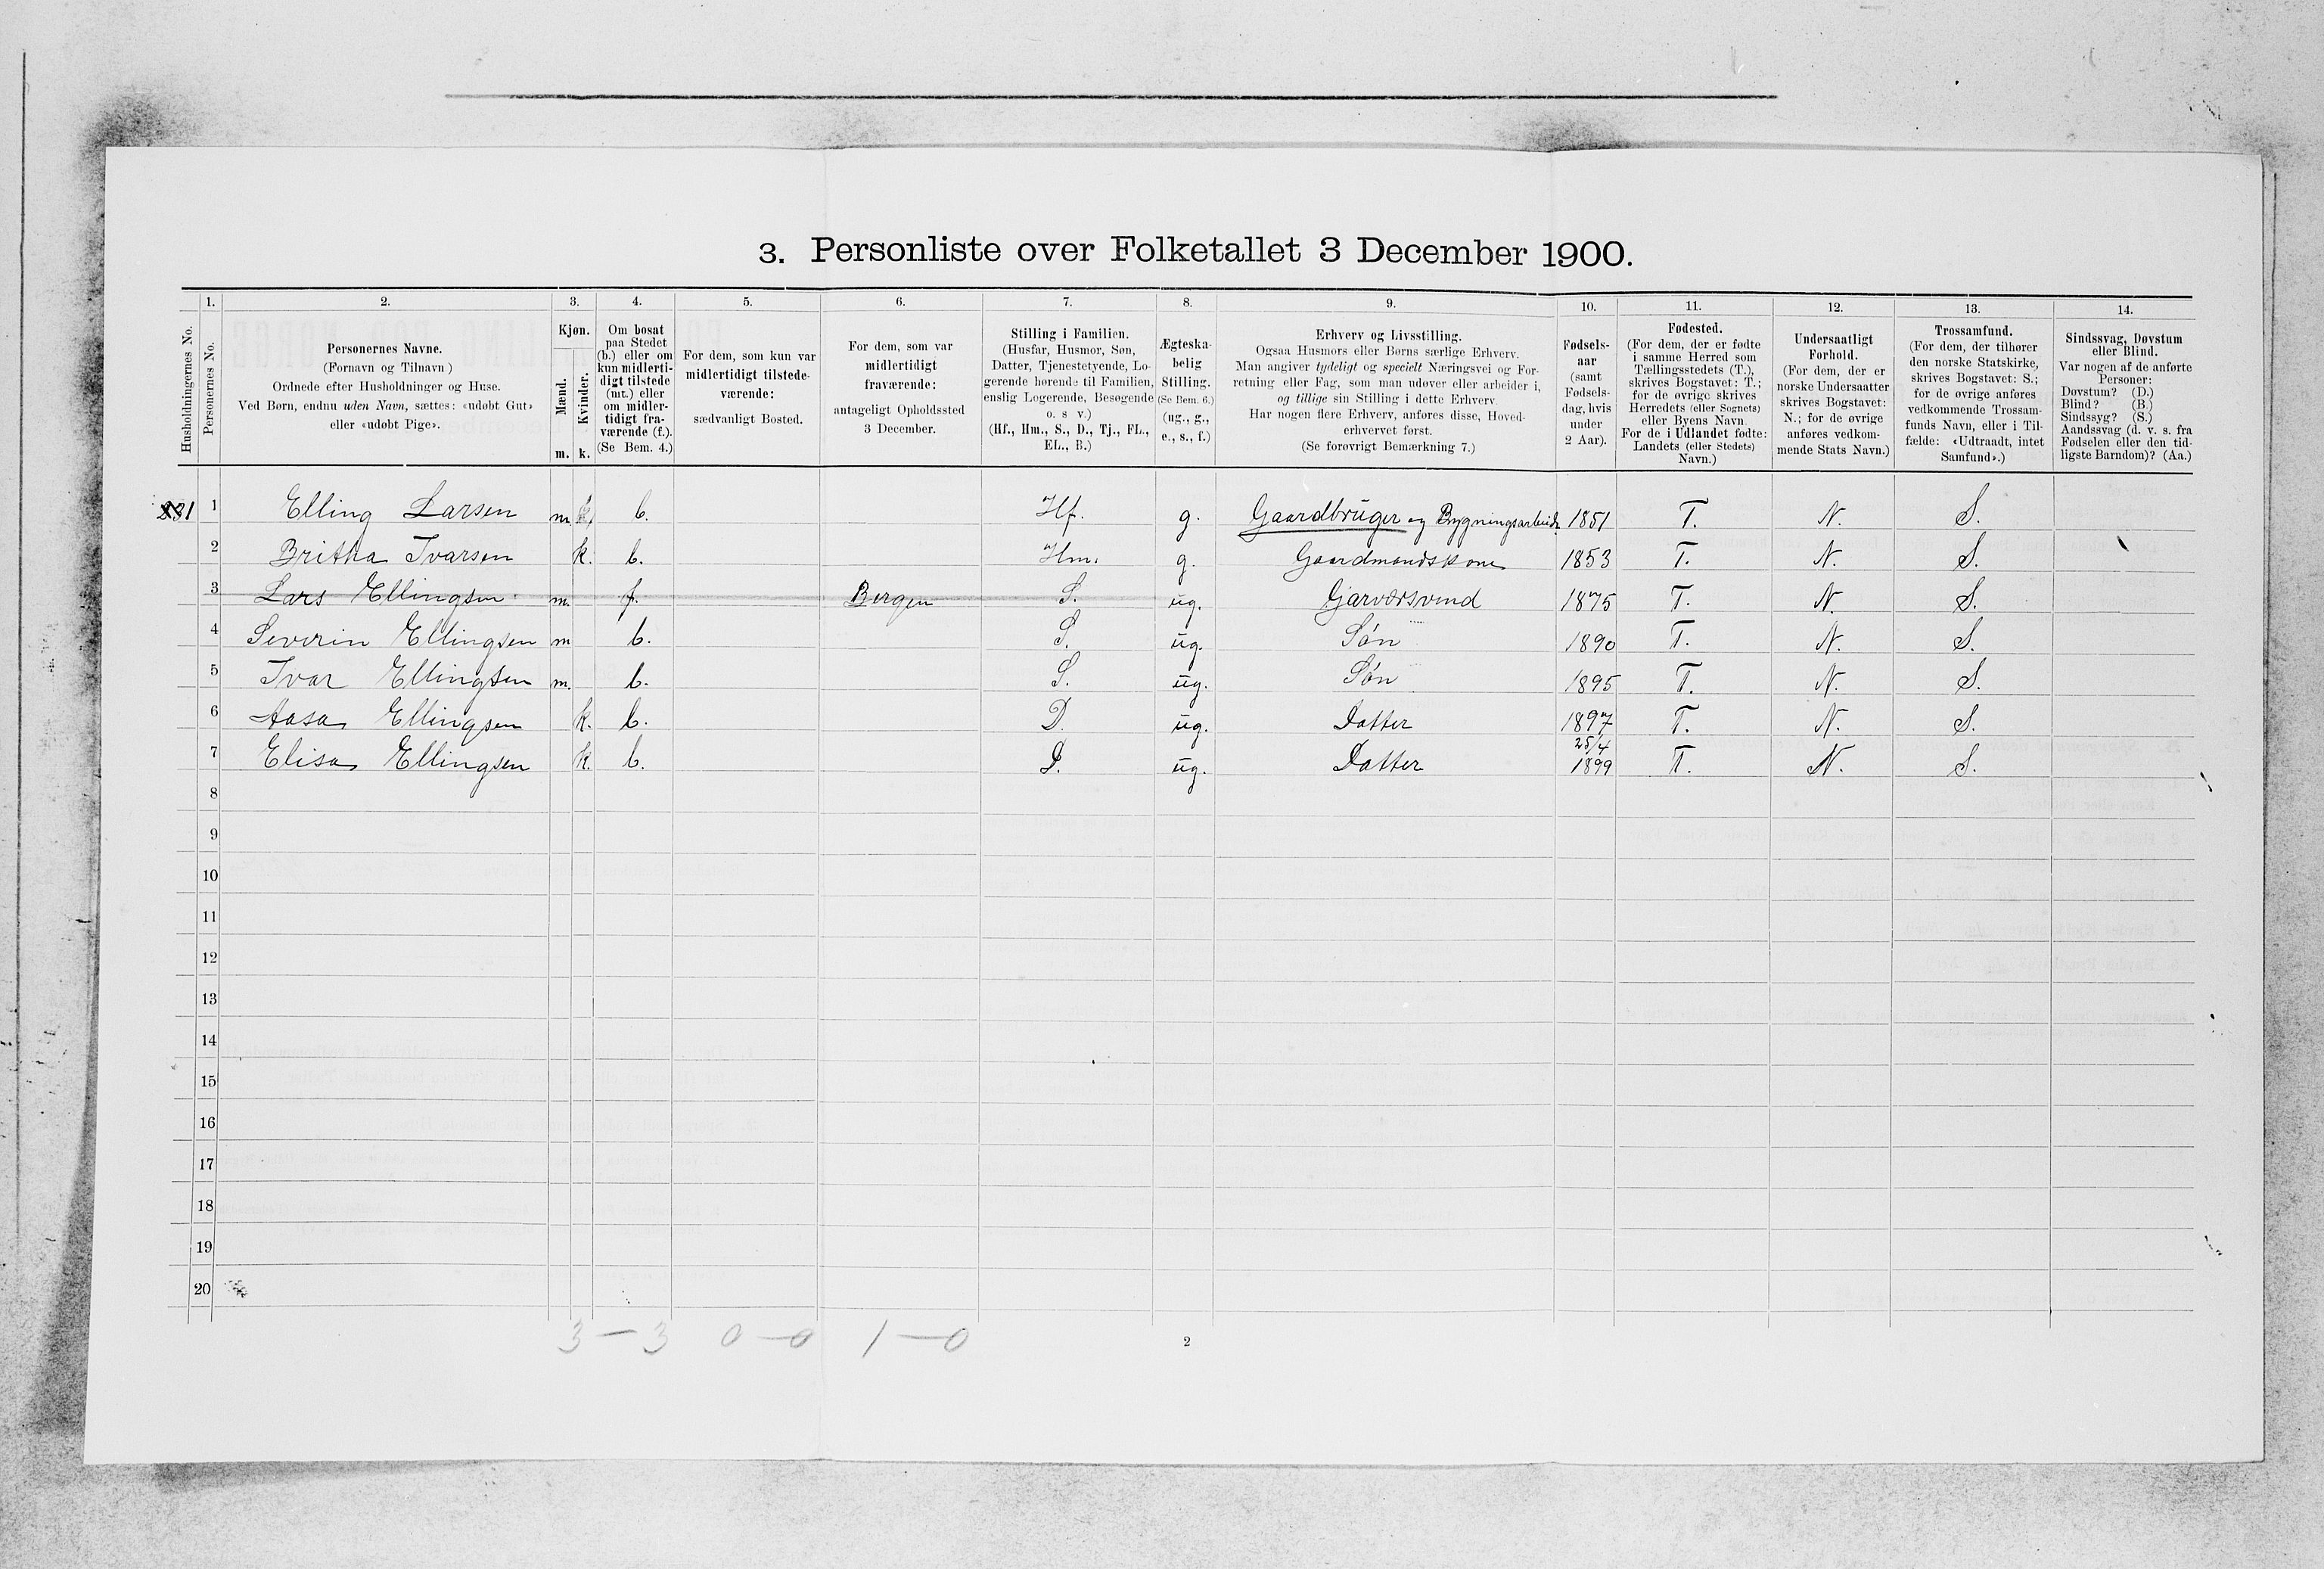 3. Personliste over Folketallet 3 December 1900.
1. 2. 3. 4. 5. 6. 7. 8. 9. 10. 11. 12. 13. 14.
Husholdningernes No.
Personernes No.
Personernes Navne.
(Fornavn og Tilnavn)
Ordnede efter Husholdninger og Huse.
Ved Børn, endnu uden Navn, sættes: «udøbt Gut»
eller «udøbt Pige».
Kjøn.
Mænd.
Kvinder.
m. k.
Om bosat
paa Stedet
(b.) eller om
kun midlerti-
digt tilstede
(mt.) eller
om midler-
tidigt fra-
værende (f.).
(Se Bem. 4.)
For dem, som kun var
midlertidigt tilstede-
værende:
sædvanligt Bosted.
For dem, som var
midlertidigt
fraværende:
antageligt Opholdssted
3 December.
Stilling i Familien.
(Husfar, Husmor, Søn,
Datter, Tjenestetyende, Lo-
gerende hørende til Familien,
enslig Logerende, Besøgende
o. s v.)
(Hf., Hm., S., D., Tj., FL.,
EL., B.)
Ægteska-
belig
Stilling.
(Se Bem. 6.)
(ug., g.,
e., s., f.)
Erhverv og Livsstilling.
Ogsaa Husmors eller Børns særlige Erhverv.
Man angiver tydeligt og specielt Næringsvei og For-
retning eller Fag, som man udøver eller arbeider i,
og tillige sin Stilling i dette Erhverv.
Har nogen flere Erhverv, anføres disse, Hoved-
erhvervet først.
(Se forøvrigt Bemærkning 7.)
Fødsels-
aar
(samt
Fødsels-
dag, hvis
under
2 Aar).
Fødested.
(For dem, der er fødte
i samme Herred som
Tællingsstedets (T.),
skrives Bogstavet: T.;
for de øvrige skrives
Herredets (eller Sognets)
eller Byens Navn.
For de i Udlandet fødte:
Landets (eller Stedets)
Navn.)
Undersaatligt
Forhold.
(For dem, der er
norske Undersaatter
skrives Bogstavet:
N.; for de øvrige
anføres vedkom-
mende Stats Navn.)
Trossamfund.
(For dem, der tilhører
den norske Statskirke,
skrives Bogstavet: S.;
for de øvrige anføres
vedkommende Trossam-
funds Navn, eller i Til-
fælde: «Udtraadt, intet
Samfund».)
Sindssvag, Døvstum
eller Blind.
Var nogen af de anførte
Personer:
Døvstum? (D.)
Blind? (B.)
Sindssyg? (S.)
Aandssvag (d. v. s. fra
Fødselen eller den tid-
ligste Barndom)? (Aa.)
1 Elling Larsen m. k. b. Hf. g. Gaardbruger og Bygningsarbeider 1851 T. N. S.
2 Britha Ivarsen k. b. Hm. g. Gaardmandskone 1853 T. N. S.
3 Lars Ellingsen m. f. Bergen S. ug. Garversvend 1875 T. N. S.
4 Severin Ellingsen m b. S. ug. Søn 1890 T. N. S.
5 Ivar Ellingsen m. b. S. ug. Søn 1895 T. N. S.
6 Aasa Ellingsen k. b. D. ug. Datter 1897 T. N. S.
7 Elisa Ellingsen k. b. D. ug. Datter 25/4 1899 T. N. S.
8
9
10
11
12
13
14
15
16
17
18
19
20
3 — 3 0 — 0 1 — 0
2